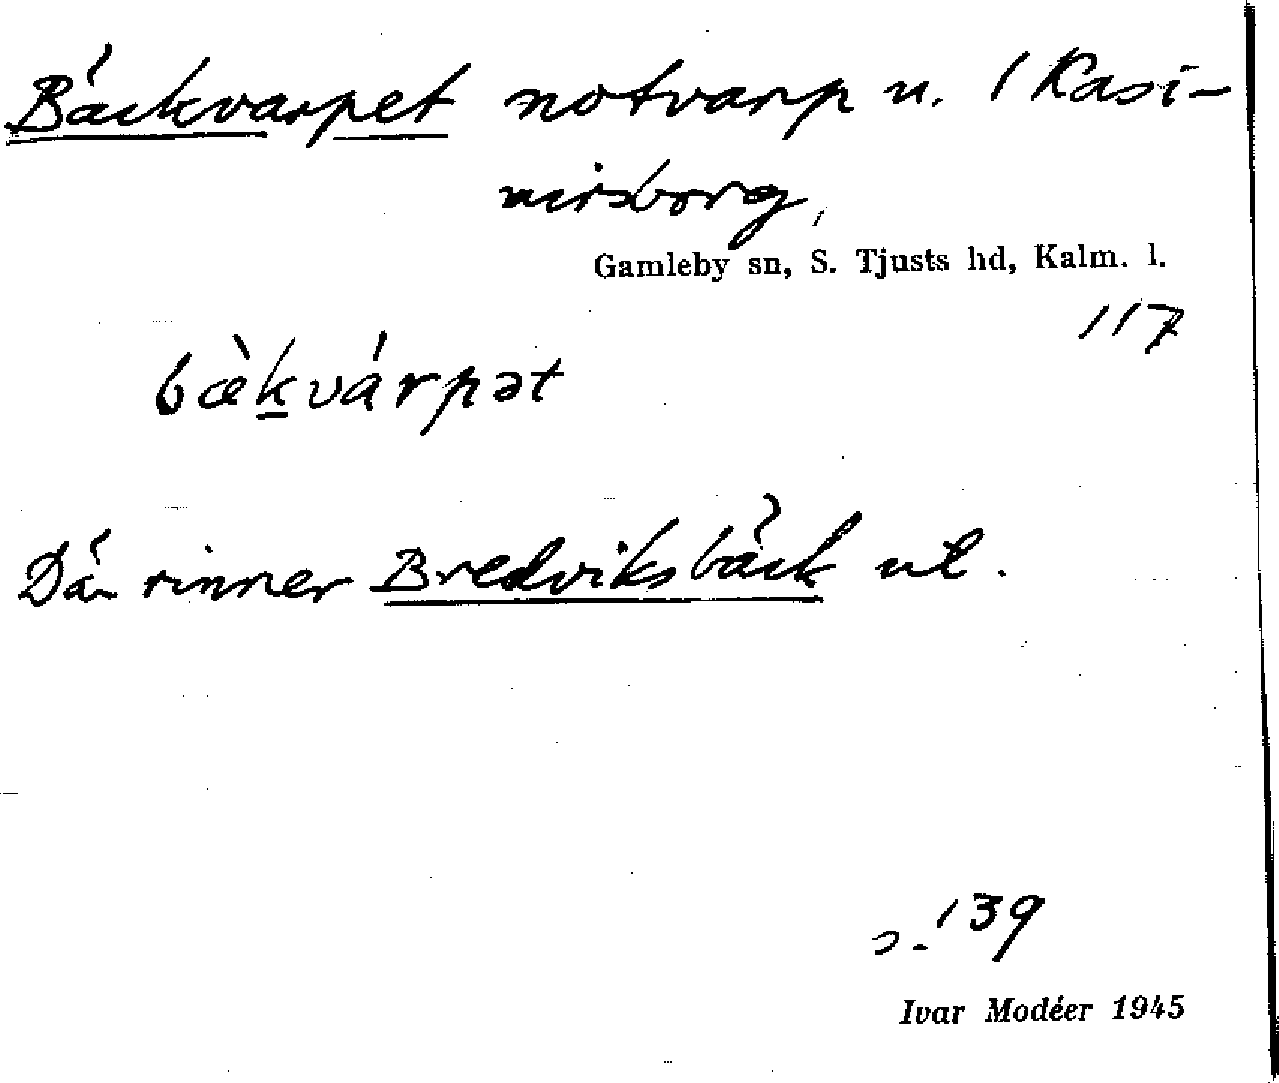 Bäckvarpet notvarp u. 1 Kasi-
mirsborg,
Gamleby sn, S. Tjusts hd, Kalm. l.
117
bæ̀kvárpət
Där rinner Bredviksbäck ut.
s. 139
Ivar Modéer 1945